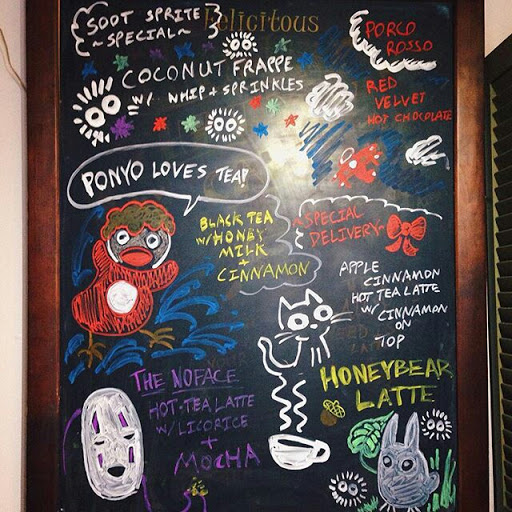 Delicitous
SOOT SPRITE
~SPECIAL~
COCONUT FRAPPE
W/ WHIP + SPRINKLES
PORCO
ROSSO
RED
VELVET
HOT CHOCOLATE
PONYO LOVES TEA!
BLACK TEA
W/ HONEY
MILK
+
CINNAMON
~SPECIAL
DELIVERY~
APPLE
CINNAMON
HOT TEA LATTE
W/ CINNAMON
ON
TOP
THE NOFACE
HOT-TEA LATTE
W/ LICORICE
+
MOCHA
HONEYBEAR
LATTE